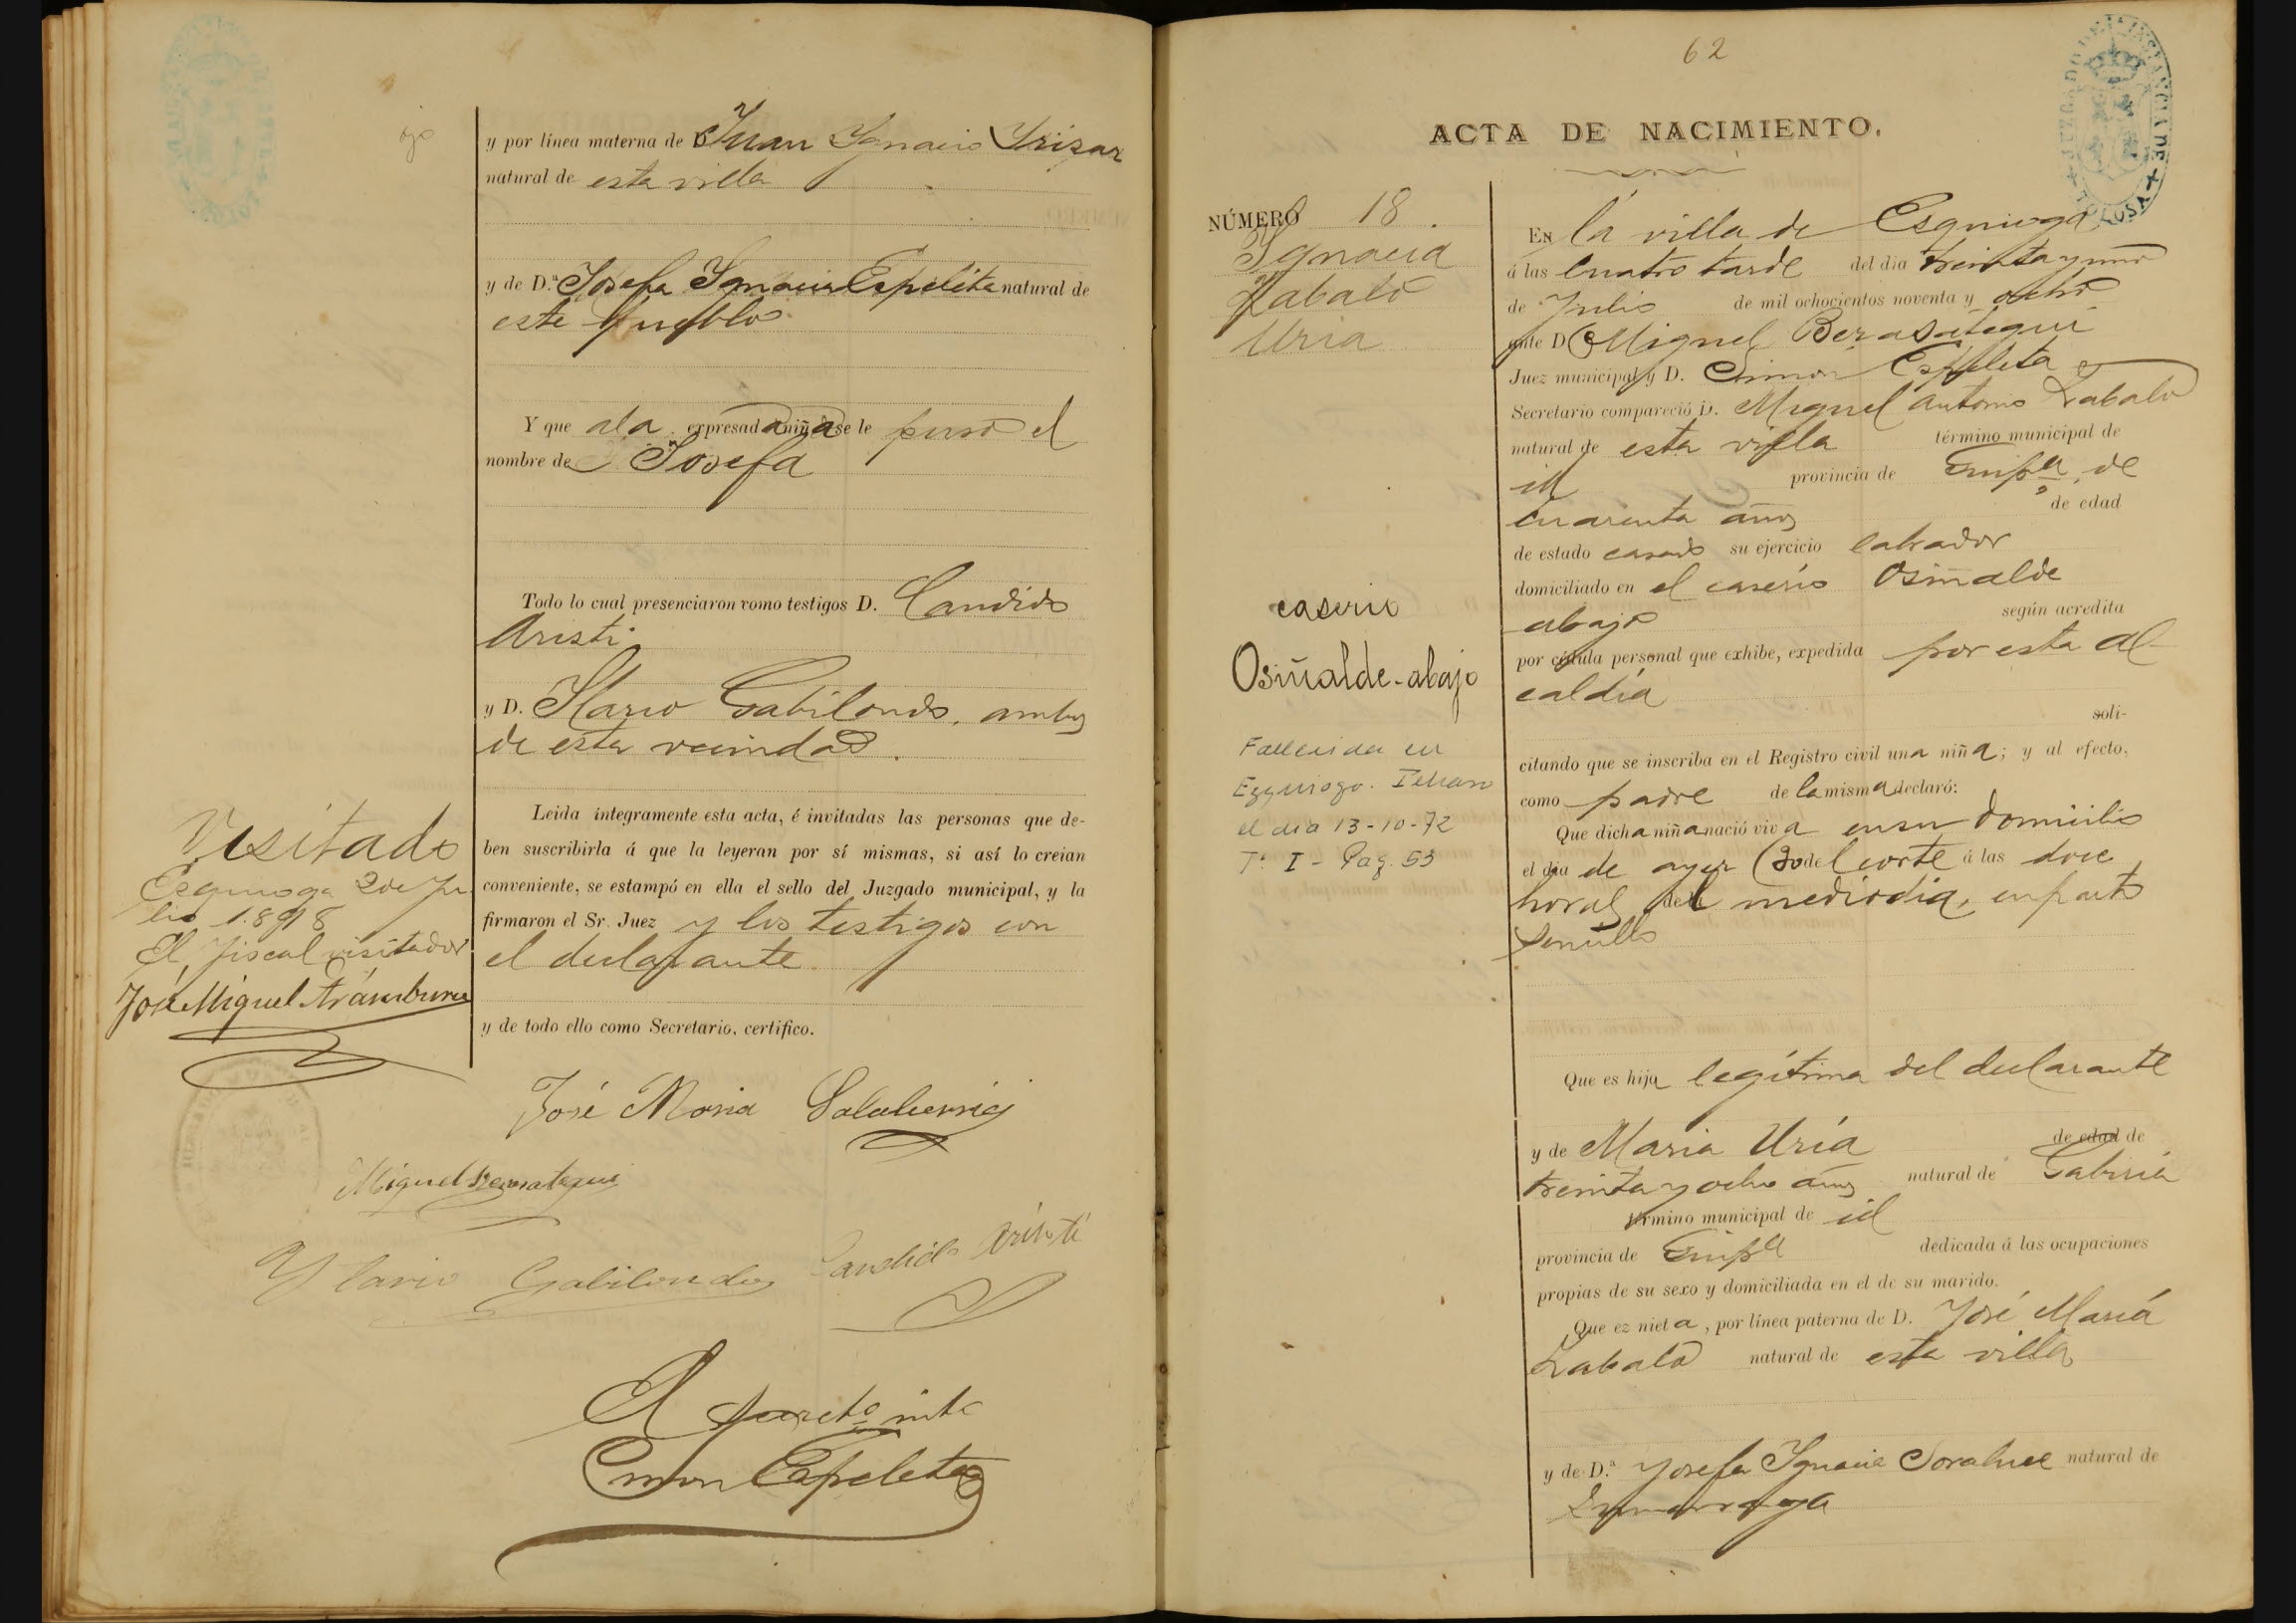 y por línea materna de D. Juan Ygnacio Yrizar
natural de esta villa
y de D.ª Josefa Ygnacia Espeleta natural de
este pueblo
Y que a la expresada niña se le puso el
nombre de Josefa
Todo lo cual presenciaron como testigos D. Candido
Aristi
y D. Ylario Gabilondo, ambos
de esta vecindad.
Leida íntegramente esta acta, é invitadas las personas que de-
ben suscribirla á que la leyeran por sí mismas, si así lo creian
conveniente, se estampó en ella el sello del Juzgado municipal, y la
firmaron el Sr. Juez y los testigos con
el declarante
y de todo ello como Secretario, certifico.
Visitado
Ezquioga 2 de Ju
lio 1.898
El fiscal visitador
José Miguel Arámburu
José Maria Salaberria
Miguel Berasategui
Ylario Gabilondo Candido Aristi
El Secreto
Simon Espeleta
62
ACTA DE NACIMIENTO.
JUZGADO DE 1ª INSTANCIA DE TOLOSA
NÚMERO 18.
Ygnacia
Zabalo
Uria
caserio
Osiñalde-abajo
Fallecida en
Ezquiogo. Itchaso
el dia 13-10-72
T: I - Pag. 53
EN la villa de Esquioga
á las cuatro tarde del dia treinta y uno
de Julio de mil ochocientos noventa y ocho
ante D. Miguel Berasategui
Juez municipal y D. Simon Espeleta
Secretario compareció D. Miguel Antonio Zabalo
natural de esta villa término municipal de
id provincia de Guipª, de
cuarenta años de edad
de estado casado su ejercicio labrador
domiciliado en el caserío Osiñalde
abajo según acredita
por cédula personal que exhibe, expedida por esta al-
caldía
soli-
citando que se inscriba en el Registro civil una niña; y al efecto,
como padre de la misma declaró:
Que dicha niña nació viva en su domicilio
el dia de ayer (30 del corte á las doce
horas del mediodia, en parto
sencillo
Que es hija legítima del declarante
y de Maria Uría de edad de
treinta y ocho años natural de Gabiria
término municipal de id
provincia de Guipª dedicada á las ocupaciones
propias de su sexo y domiciliada en el de su marido.
Que ez nieta, por línea paterna de D. José María
Zabalo natural de esta villa
y de D.ª Josefa Ygnacia Soraluce natural de
Zumarraga